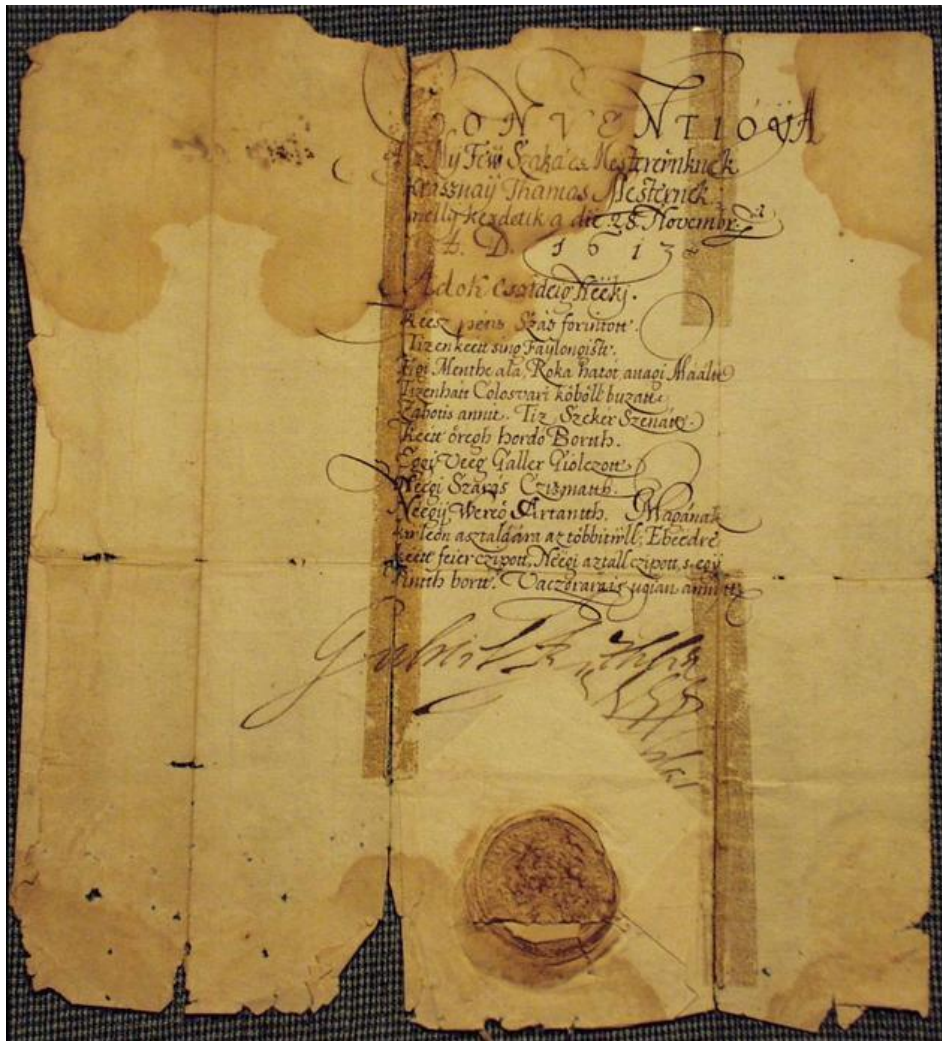 CONVENTIOYA
Az My Few Szakács Mestereinknek
Krasznaÿ Thamas Mesternek,
melly kezdetik a die 28 Novembr.
A. D. 1613
Adok esztdeig Neeki.
Keesz penz Száz forintott.
Tizenkeett sing Faÿlongist.
Egi Menthe ala, Roka hatot, auagi Maalit
Tizenhatt Colosvari köböll buzatt
Zabotis annit. Tiz Szeker Szenátt.
Keett öregh hordo Borth.
Egÿ Veeg Galler Giolczott
Neegi Szaras Czismatth.
Neegÿ Werö Artantth. Magának
az többitwll; Ebeedre
keett feier czipott, Neegi aztall czipott, s egÿ
Pintth bortt. Vaczorarais ugian annitt
Gabriel Bethlen